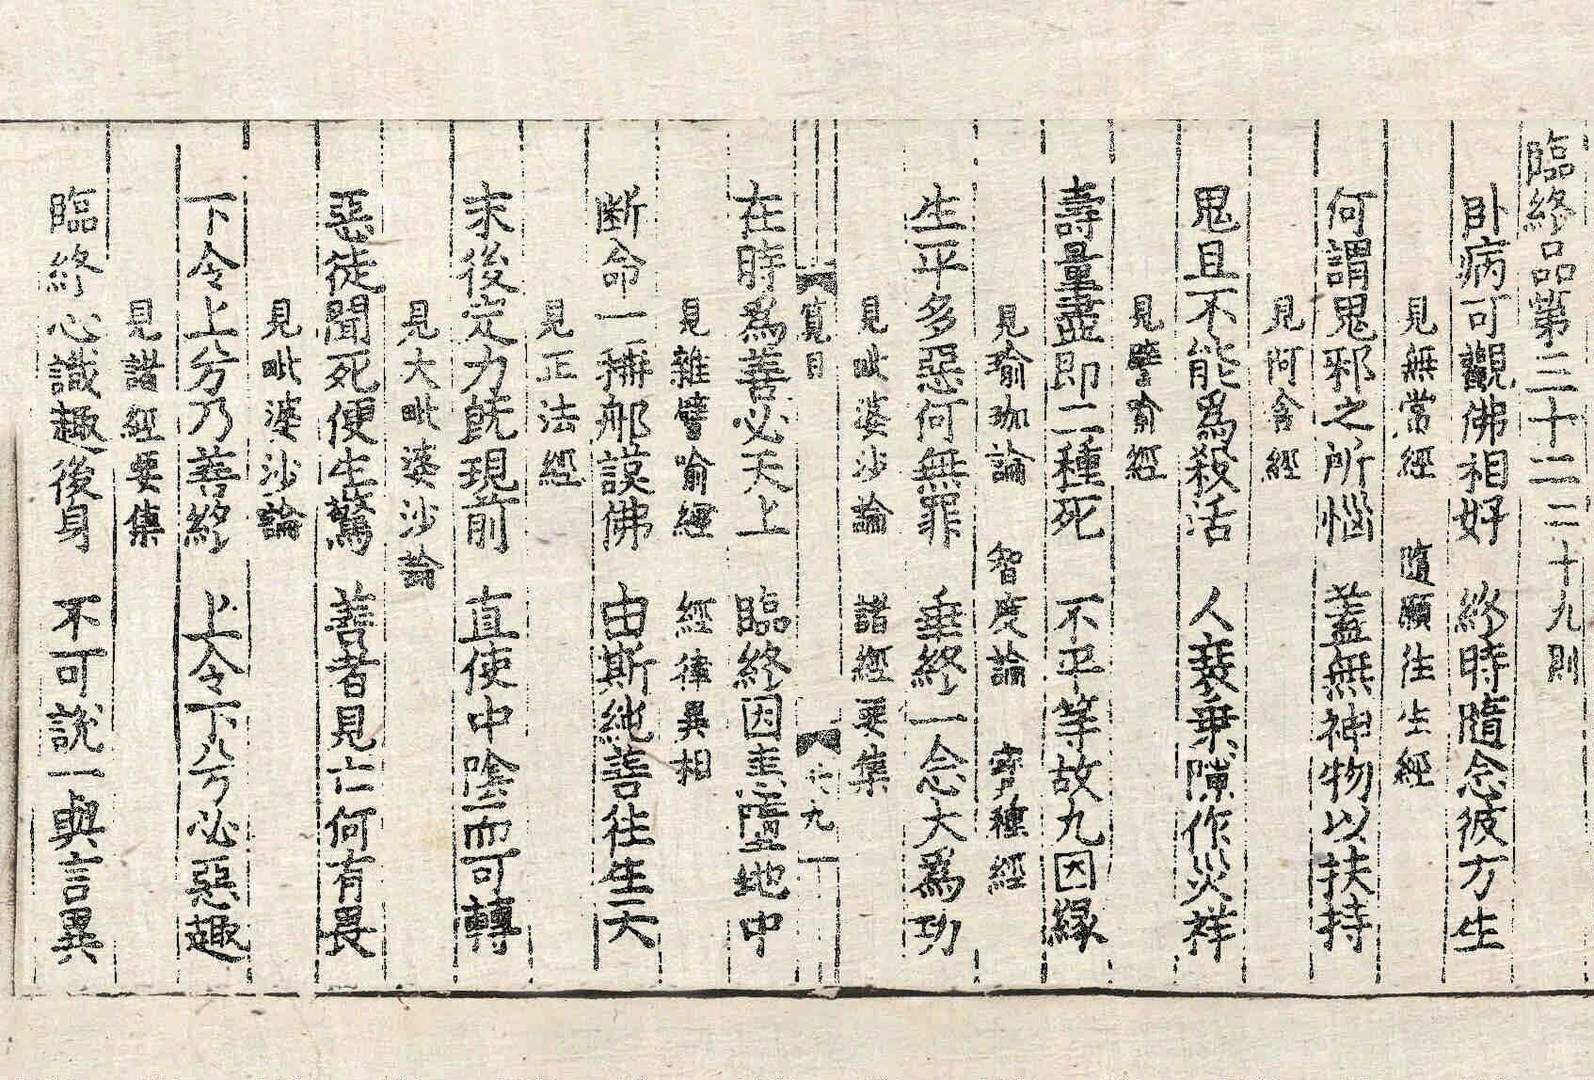 臨終品第三十二 二十九則
臥病可觀佛相好 終時隨念彼方生
見無常經 隨願往生經
何謂鬼邪之所惱 蓋無神物以扶持
見阿含經
鬼且不能爲殺活 人衰乘隙作災祥
見譬喻經
壽量盡即二種死 不平等故九因緣
見瑜珈論 智度論 寶種經
生平多惡何無罪 垂終一念大爲功
見毗婆沙論 諸經要集
寬目 九
在時爲善必天上 臨終因恚墮地中
見雜譬喻經 經律異相
斷命一稱那謨佛 由斯純善往生天
見正法經
末後定力旣現前 直使中陰而可轉
見大毗婆沙論
惡徒聞死便生驚 善者見亡何有畏
見毗婆沙論
下令上分乃善終 上令下分必惡趣
見諸經要集
臨終心識趣後身 不可說一與言異